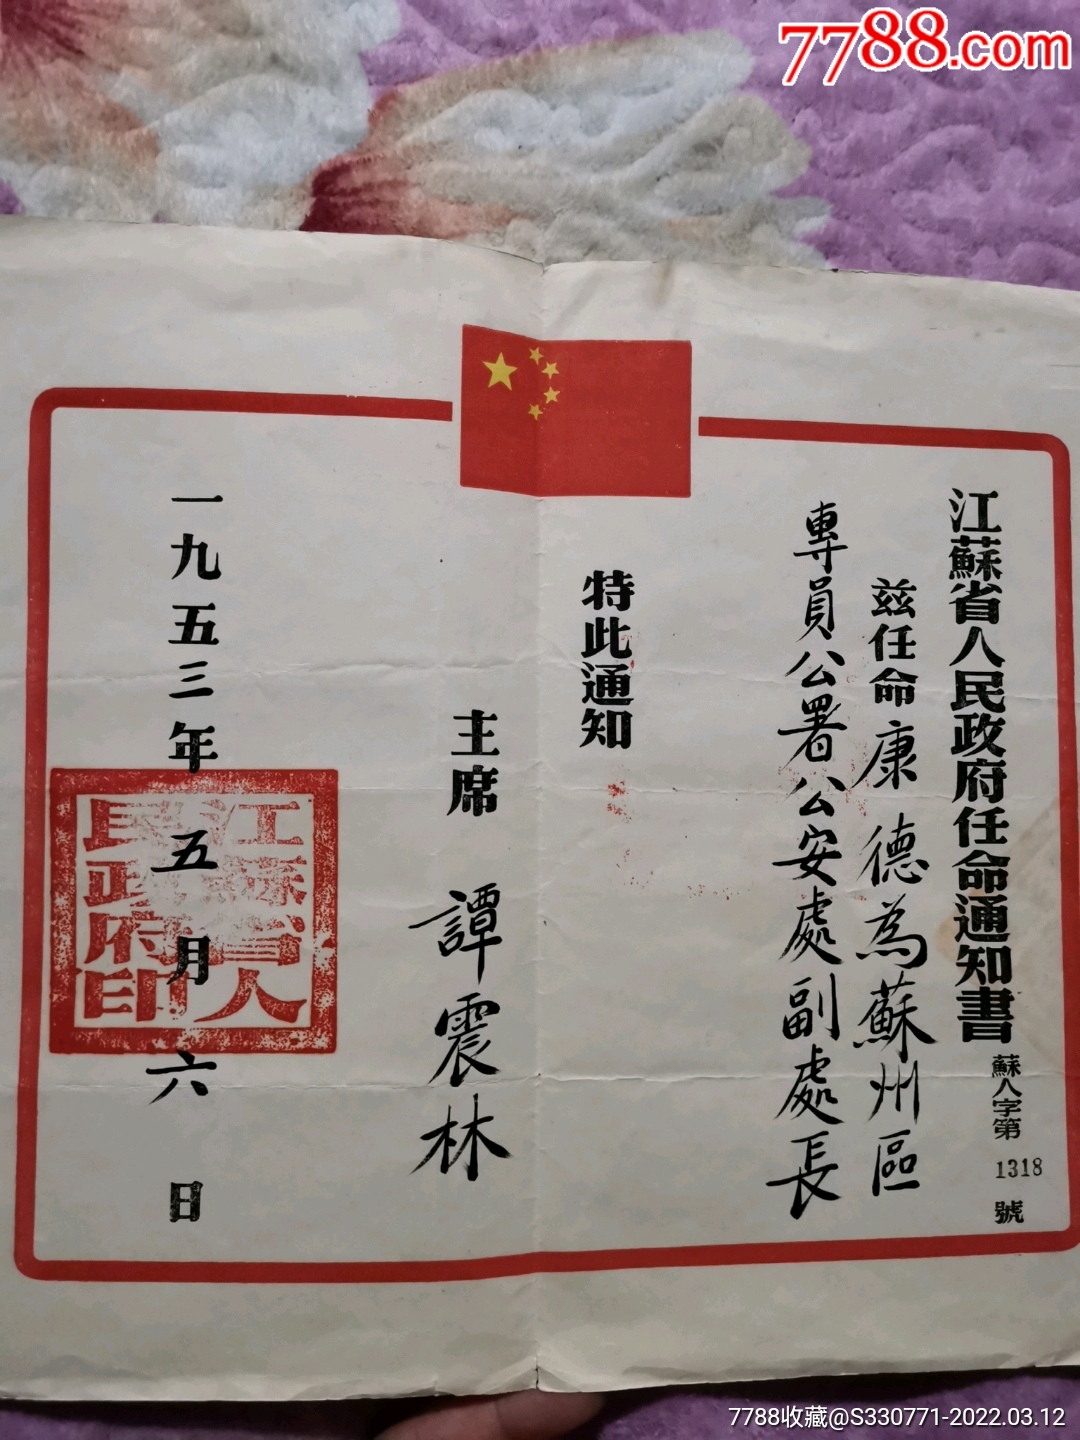 7788.com
江蘇省人民政府任命通知書
蘇人字第1318號
茲任命康德為蘇州區
專員公署公安處副處長
特此通知
主席 譚震林
一九五三年五月六日
江蘇省人
民政府印
7788收藏@S330771-2022.03.12